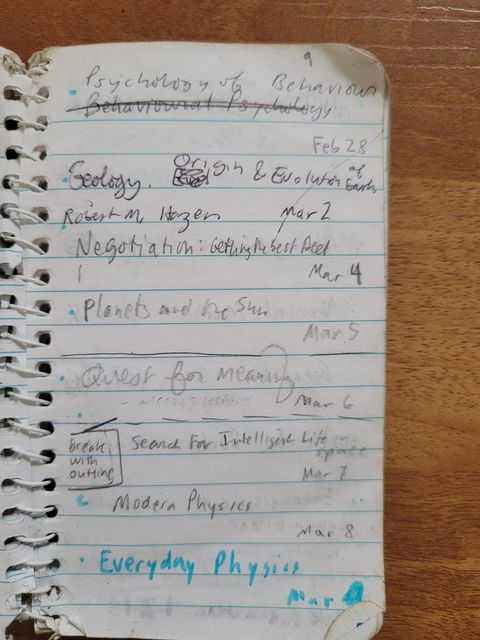 9
Psychology of Behaviour
Behavioural Psychology
Feb 28
Geology. Origin & Evolution of Earth
Robert M, Hazen Mar 2
Negotiation: Getting the best Deal
Mar 4
Planets and the Sun
Mar 5
Quest for Meaning
Mar 6
Search For Intelligent Life in space
break with outting
Mar 7
Modern Physics
Mar 8
Everyday Physics
Mar